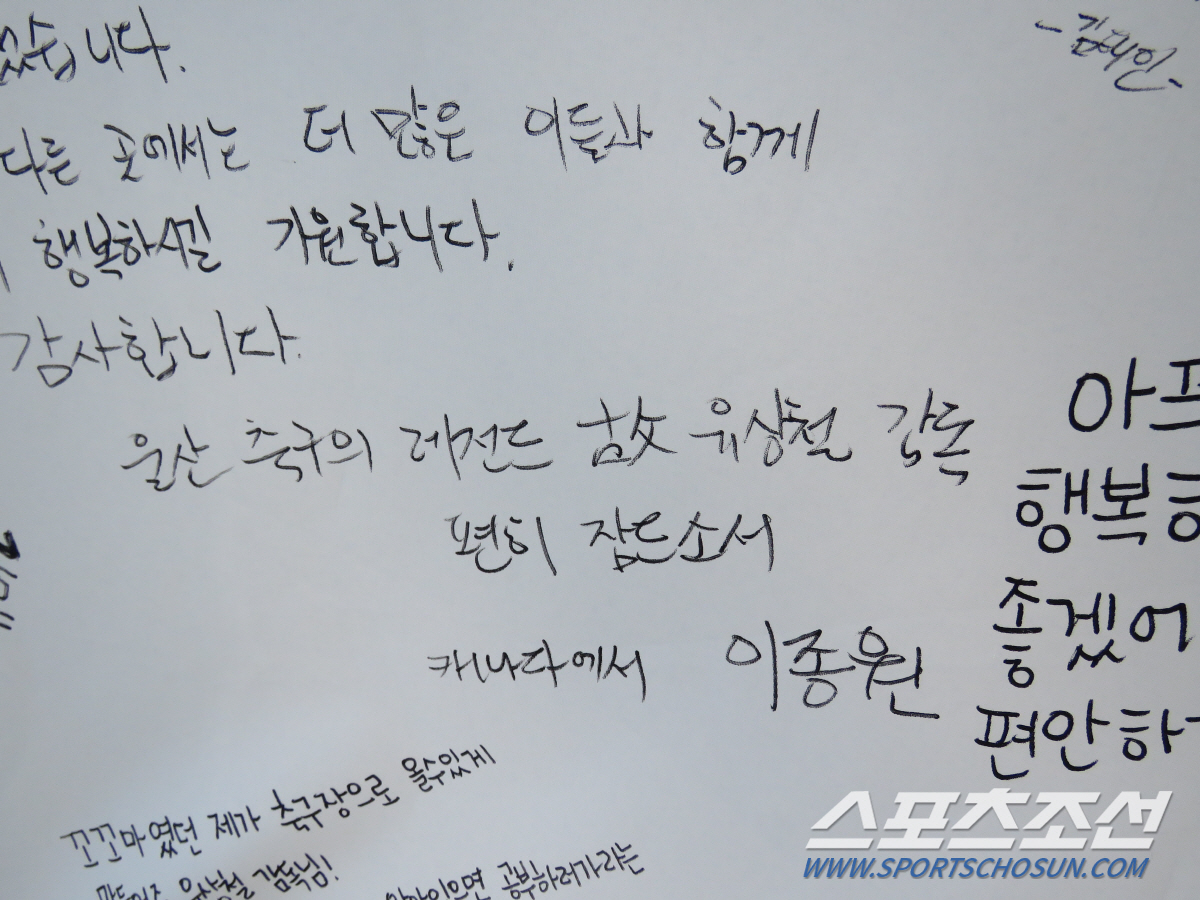 -김태인-
았습니다.
다른 곳에서는 더 많은 이들과 함께
행복하시길 기원합니다.
감사합니다.
울산 축구의 레전드 故 유상철 감독
편히 잠드소서
캐나다에서 이종원
아프
행복하
좋겠어
편안하
꼬꼬마였던 제가 축구장으로 올수있게
유상철 감독님!
공부하러가라는
스포츠조선
WWW.SPORTSCHOSUN.COM